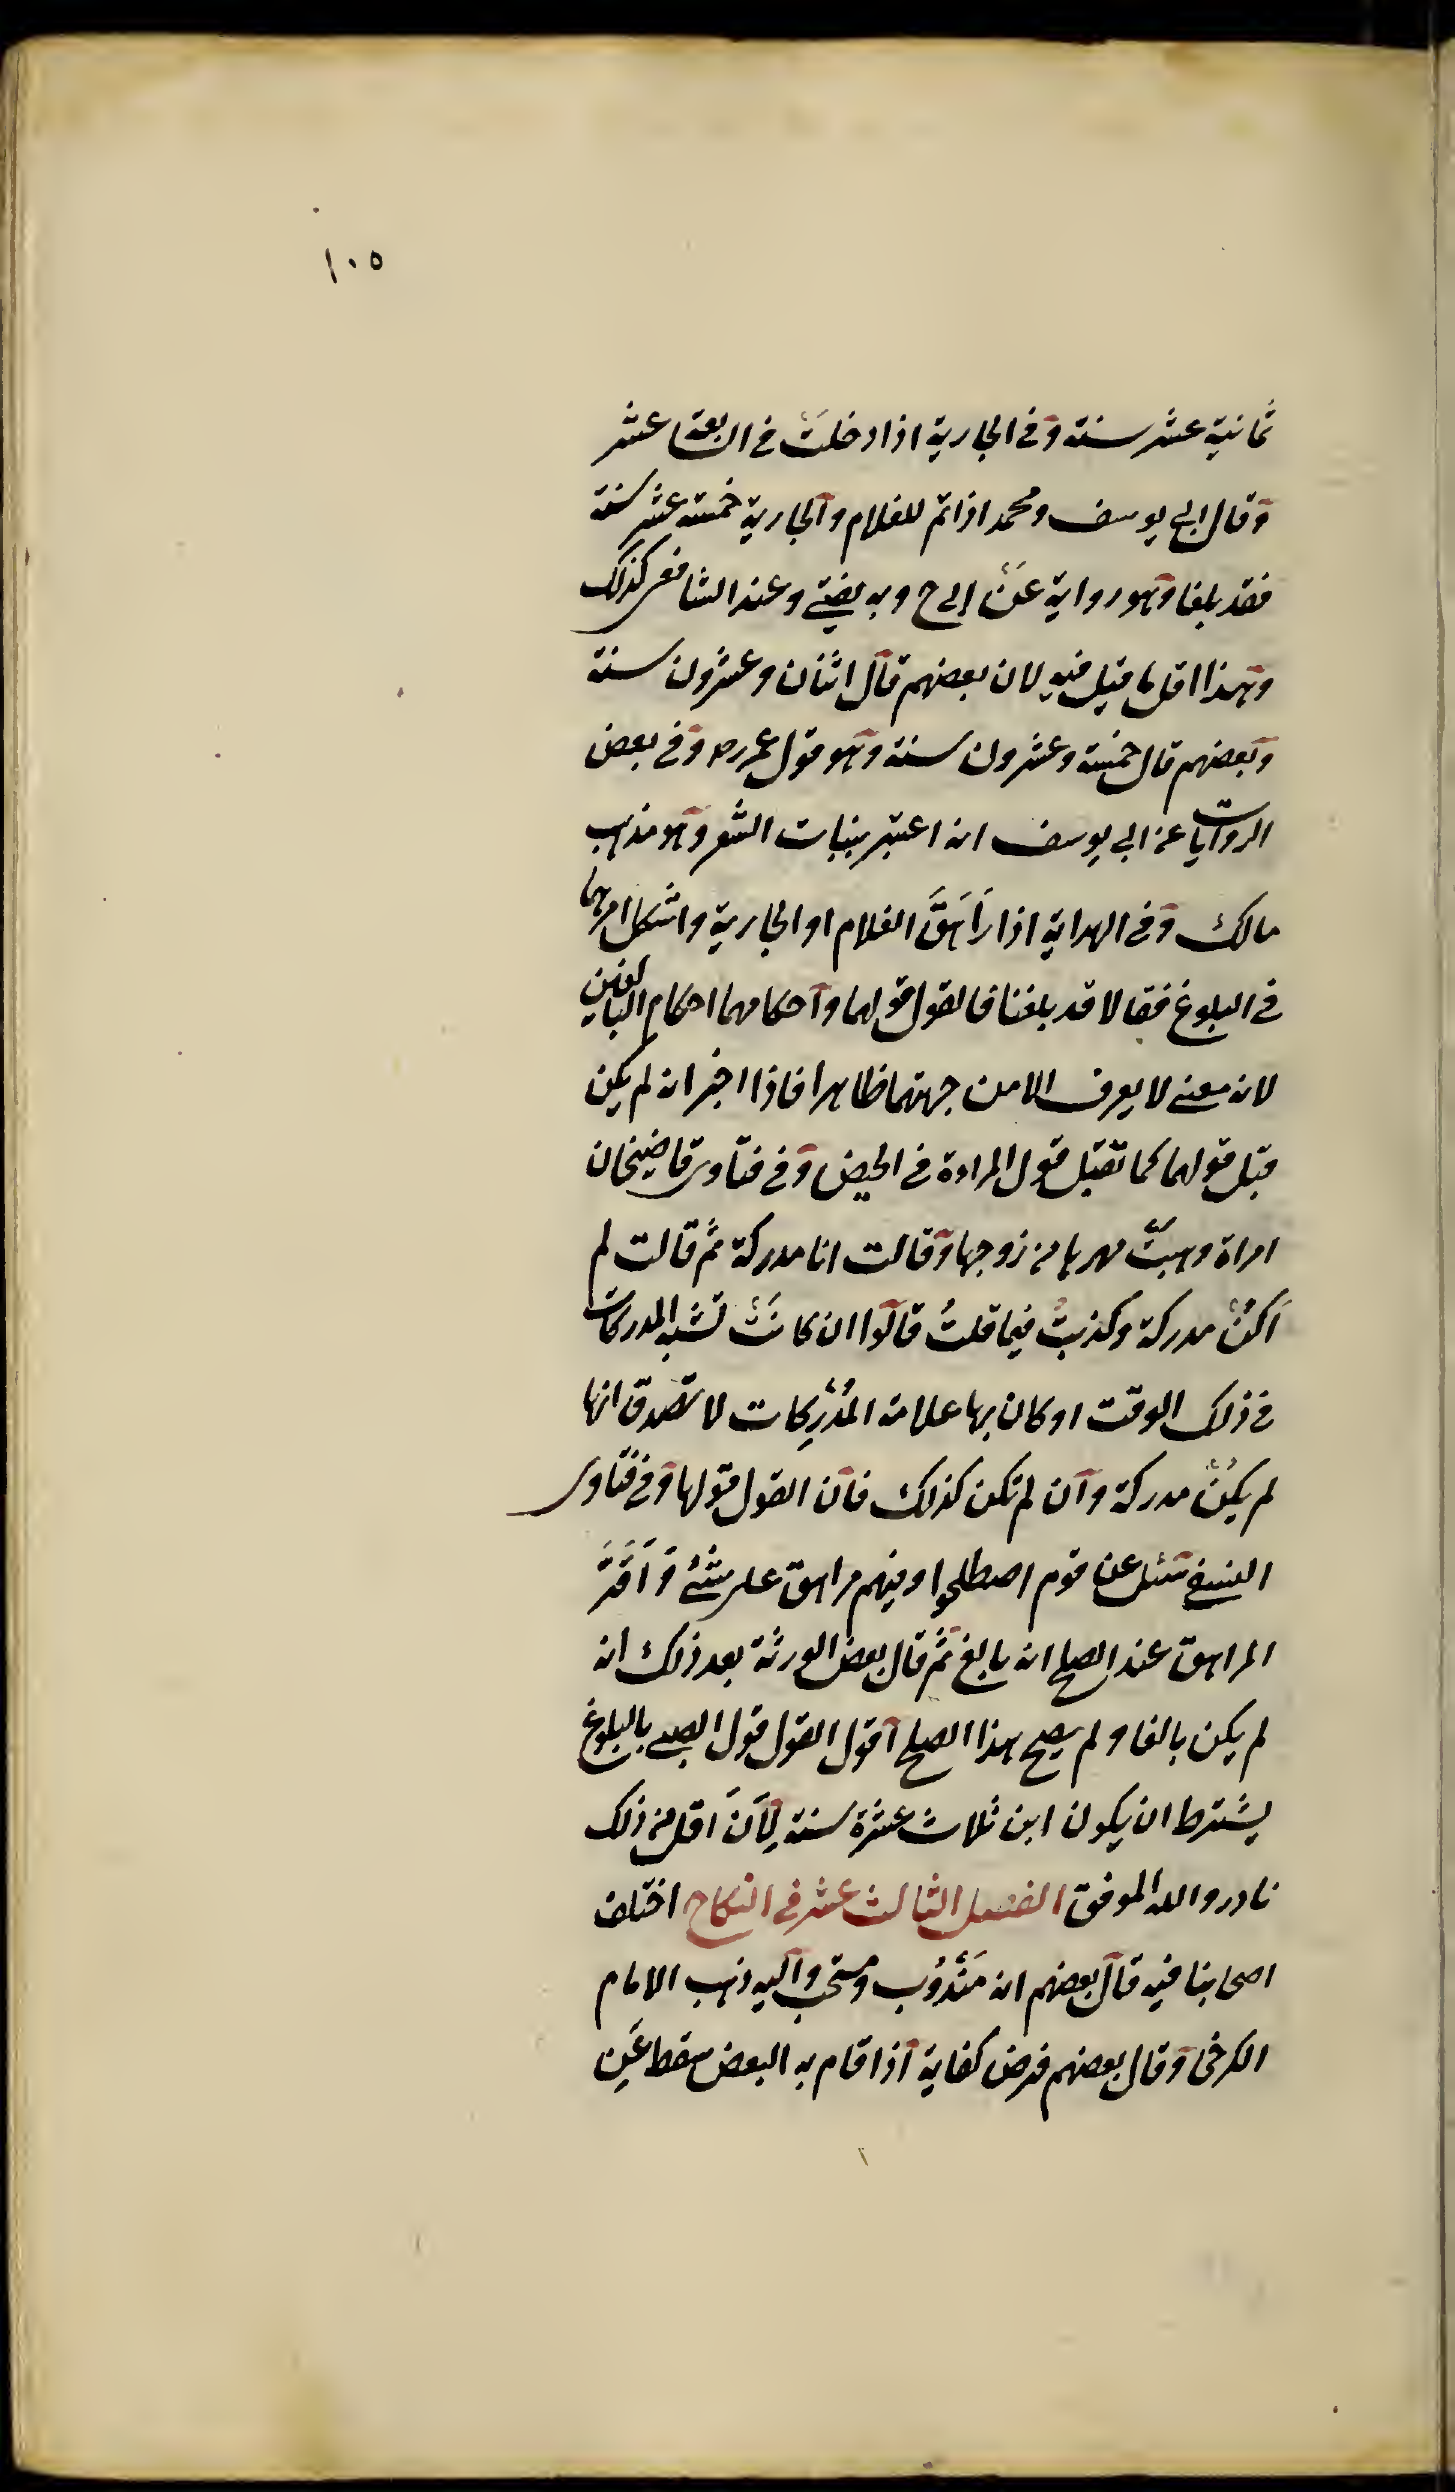 ١٠٥
ثمانية عشر سنة وفي الجارية اذا دخلت في الرابعة عشر
وقال ابي يوسف ومحمد اذا تم للغلام والجارية خمسة عشر سنة
فقد بلغا وهو رواية عن ابي ح وبه يفتى وعند الشافعي كذلك
وهذا اقل ما قيل فيه لان بعضهم قال اثنان وعشرون سنة
وبعضهم قال خمسة وعشرون سنة وهو قول عمر رضه وفي بعض
الروايات عن ابي يوسف انه اعتبر بنبات الشعر وهو مذهب
مالك وفي الهداية اذا رَاهَقَ الغلام او الجارية واشكل امرهما
في البلوغ فقالا قد بلغنا فالقول قولهما واحكامهما احكام البالغين
لانه معنى لا يعرف الا من جهتهما ظاهرا فاذا اخبرا انه لم يكن
قبل قولهما كما تقبل قول المراءة في الحيض وفي فتاوى قاضيخان
امراة وهبتْ مهرها من زوجها وقالت انا مدركة ثم قالت لم
اَكُنْ مدركة وكذبتُ فيما قلتُ قالوا ان كانَتْ تشبه المدركات
في ذلك الوقت او كان بها علامة المُدْرِكات لا تصدق انها
لم يكُنْ مدركة وان لم تكن كذلك فان القول قولها وفي فتاوى
النسفي سئل عن قوم اصطلحوا وفيهم مراهق على شئ وَاَقَرَّ
المراهق عند الصلح انه بالغ ثم قال بعض الورثة بعد ذلك انه
لم يكن بالغا ولم يصح هذا الصلح اقول القول قول الصبى بالبلوغ
يشترط ان يكون ابن ثلاث عشرة سنة لِاَنَّ اقل من ذلك
نادر والله الموفق الفصل الثالث عشر في النكاح اختلف
اصحابنا فيه قال بعضهم انه مَنْدُوب ومستحب واليه ذهب الامام
الكرخى وقال بعضهم فرض كفاية اذا قام به البعض سقط عَنِ